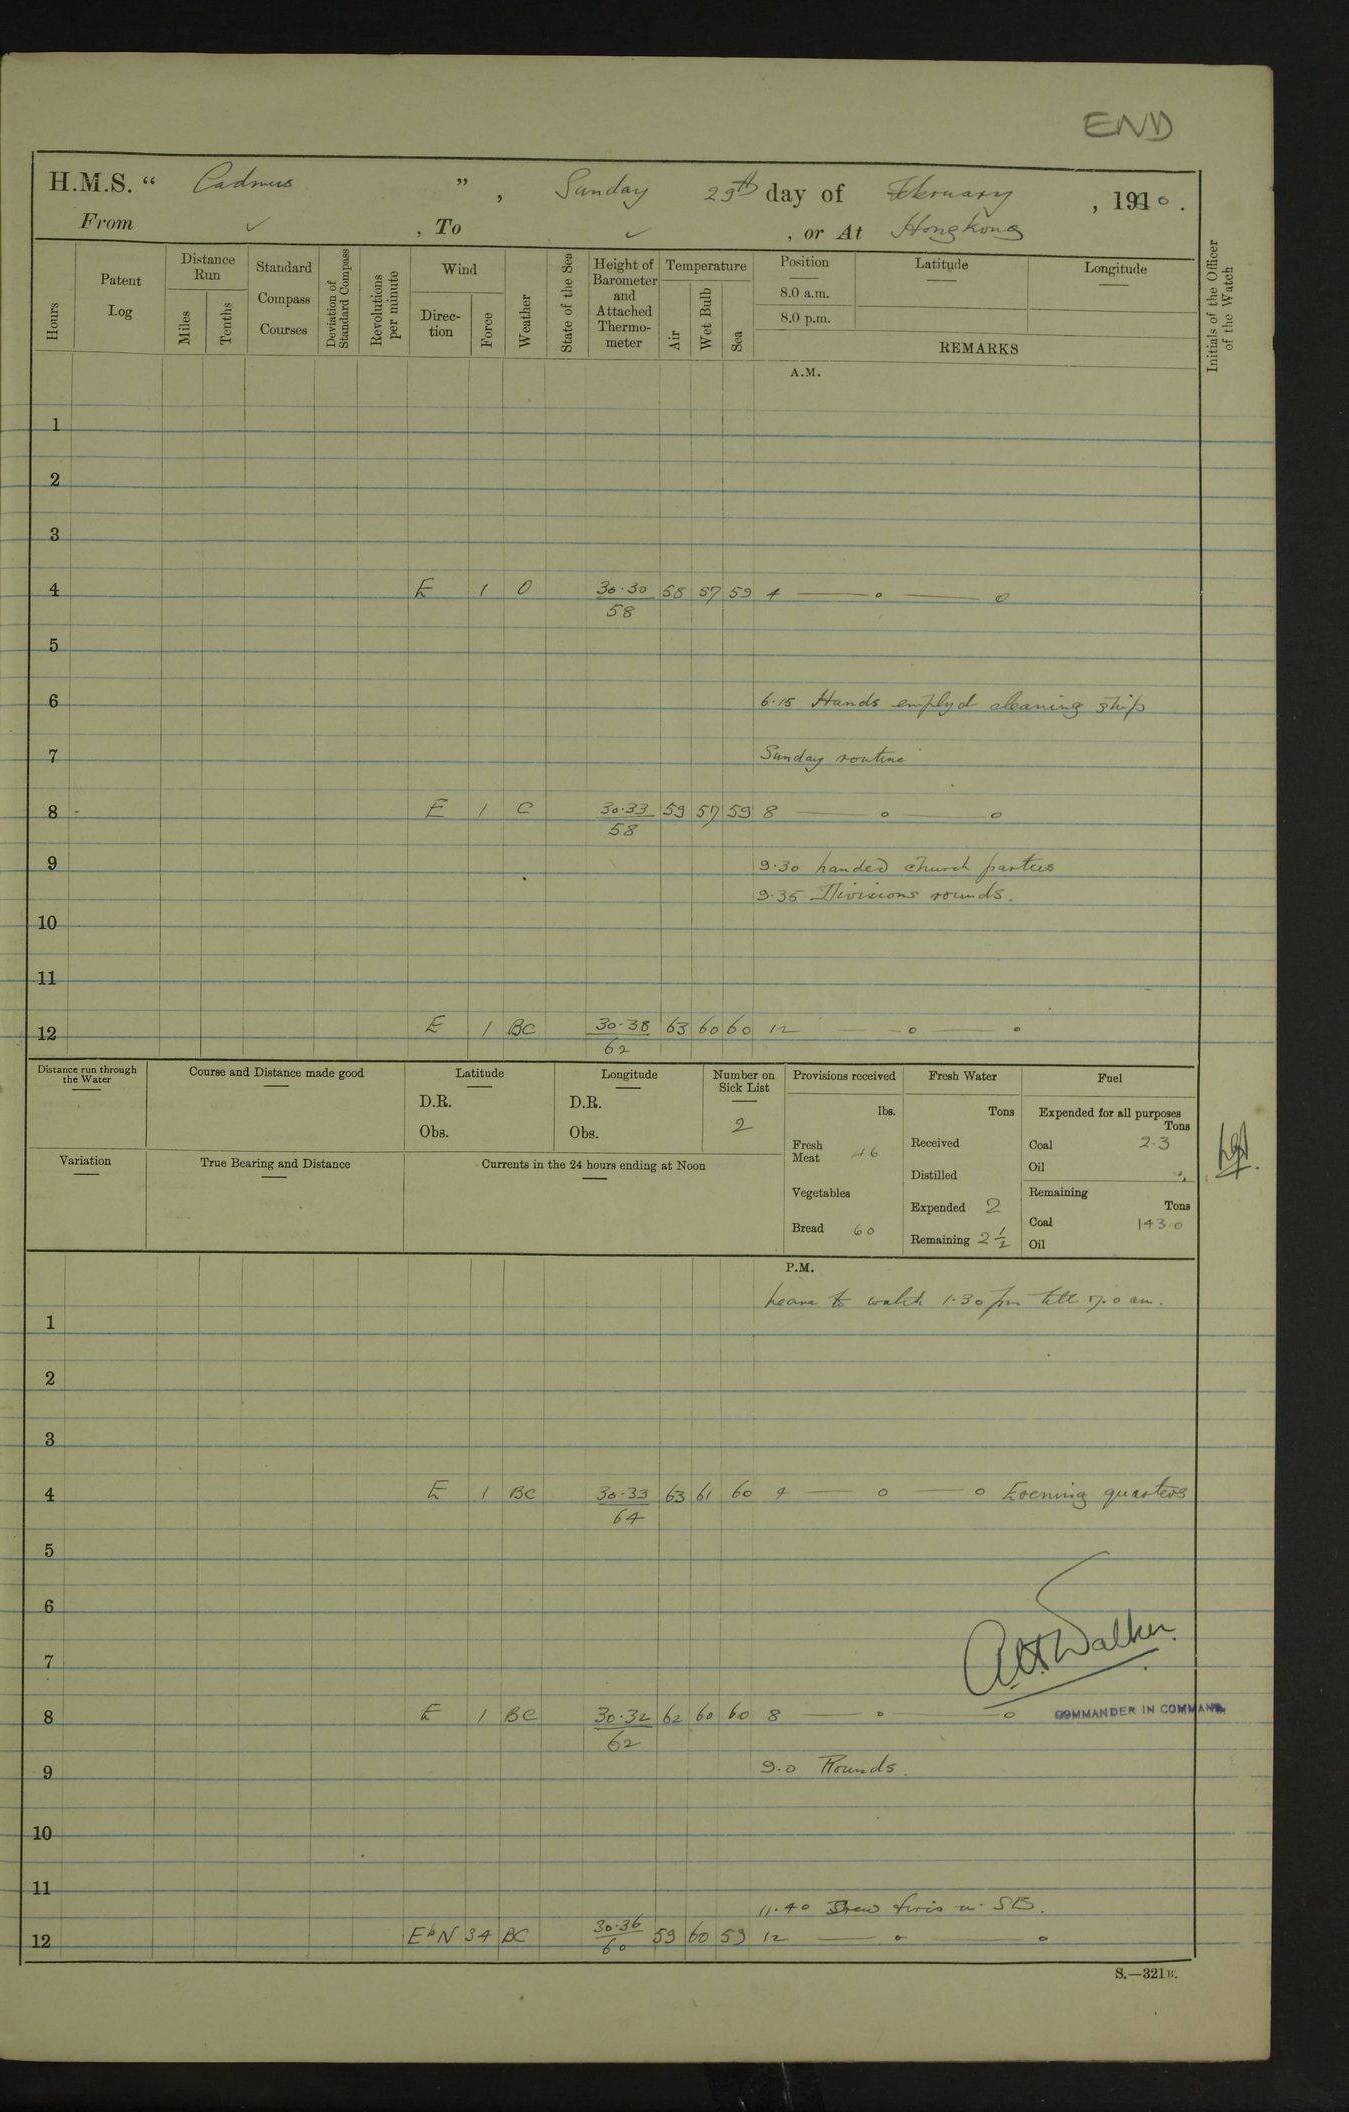 END
H.M.S. “ Cadmus ” , Sunday 29th day of February , 1920.
From ✓ , To ✓ , or At Hong Kong
Hours
Patent Log
Distance Run
Miles
Tenths
Standard Compass Courses
Deviation of Standard Compass
Revolutions per minute
Wind
Direc-tion
Force
Weather
State of the Sea
Height of Barometer and Attached Thermo-meter
Temperature
Air
Wet Bulb
Sea
Position
8.0 a.m.
8.0 p.m.
Latitude
Longitude
REMARKS
Initials of the Officer of the Watch
A.M.
1
2
3
4 E 1 O 30.30 58 57 59 4 — o — o
58
5
6 6.15 Hands employd cleaning ship
7 Sunday routine
8 - E 1 C 30.33 59 57 59 8 — o — o
58
9 9.30 Landed church parties
9.35 Divisions rounds.
10
11
12 E 1 BC 30.38 63 60 60 12 — o — o
62
Distance run through the Water
Course and Distance made good
Latitude
D.R.
Obs.
Longitude
D.R.
Obs.
Number on Sick List
2
Variation
True Bearing and Distance
Currents in the 24 hours ending at Noon
Provisions received
lbs.
Fresh Meat 46
Vegetables
Bread 60
Fresh Water
Tons
Received
Distilled
Expended 2
Remaining 2½
Fuel
Expended for all purposes
Tons
Coal 2.3
Oil
Remaining
Tons
Coal 143.0
Oil
P.M.
Leave to watch 1.30 pm till 7.0 am.
1
2
3
4 E 1 BC 30.33 63 61 60 4 — o — o Evening quarters
64
5
6
A.H. Walker.
7
8 E 1 BC 30.32 62 60 60 8 — o — o COMMANDER IN COMMAND.
62
9 9.0 Rounds.
10
11
11.40 Drew fires in SB.
12 EbN 34 BC 30.36 59 60 59 12 — o — o
60
S.—321B.